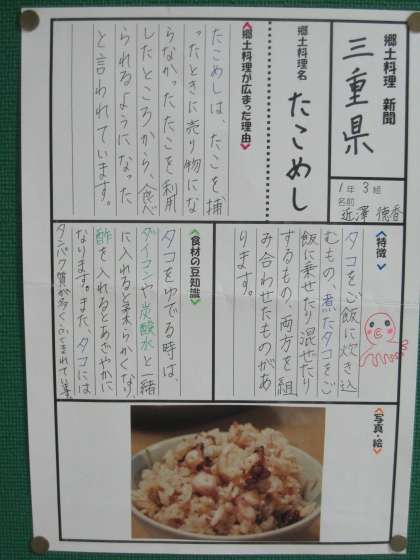 郷土料理 新聞
三重県
1年3組
名前
近澤 徳香
郷土料理名
たこめし
《郷土料理が広まった理由》
たこめしは、たこを捕
ったときに売り物にな
らなかったたこを利用
したところから、食べ
られるようになった
と言われています。
《特徴》
タコをご飯に炊き込
むもの、煮たタコをご
飯に乗せたり混ぜたり
するもの、両方を組
み合わせたものがあ
ります。
《食材の豆知識》
タコをゆでる時は、
ダイコンや炭酸水と一緒
に入れると柔らかくなり、
酢を入れるとあざやかに
なります。また、タコには
タンパク質が多くふくまれて
《写真・絵》